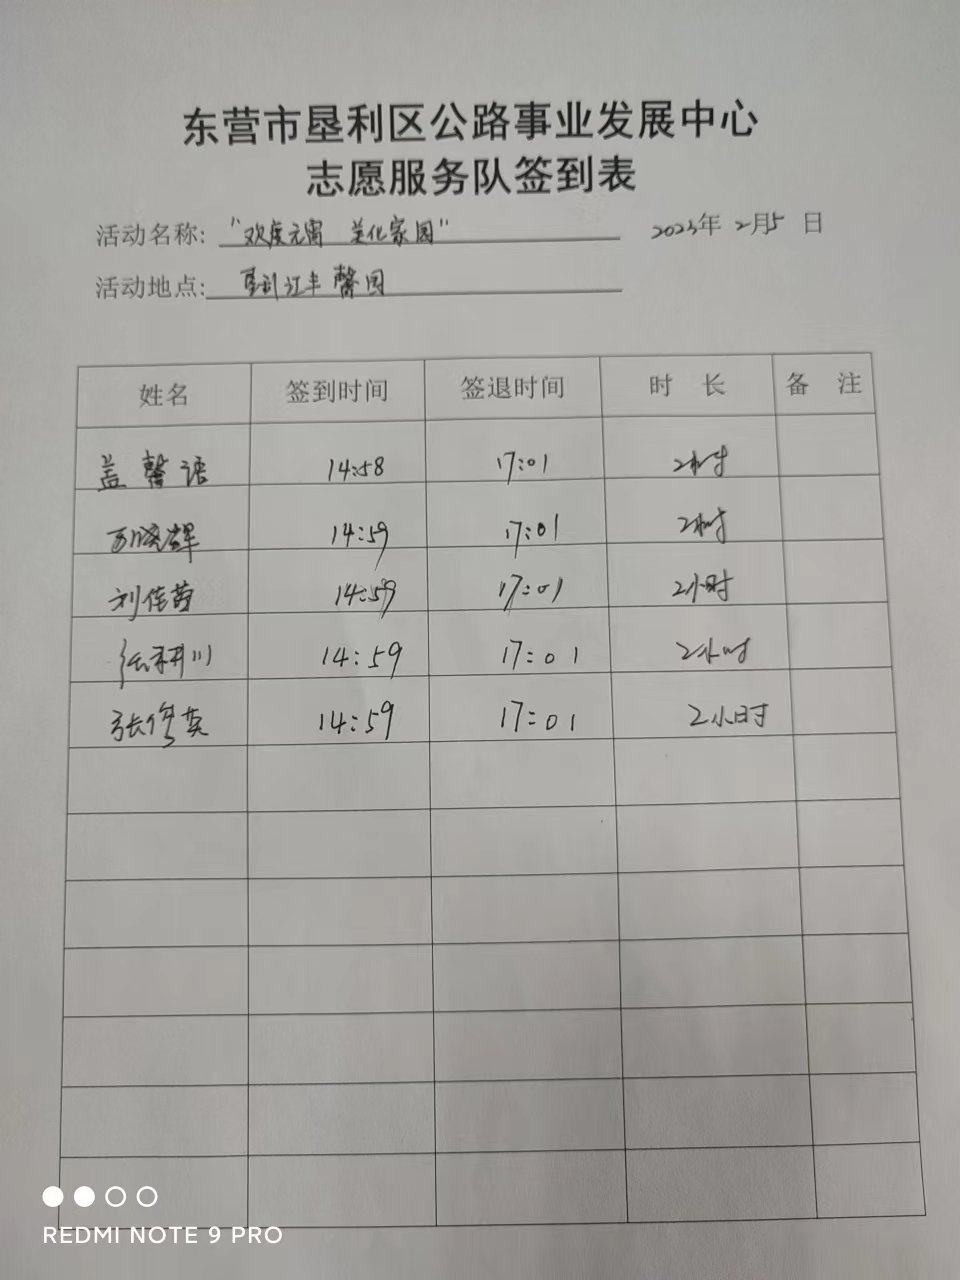 东营市垦利区公路事业发展中心
志愿服务队签到表
活动名称: "欢度元宵 美化家园" 2023年2月5日
活动地点: 垦利江丰馨园
姓名 签到时间 签退时间 时 长 备 注
盖馨语 14:58 17:01 2小时
14:59 17:01 2小时
刘佳茵 14:59 17:01 2小时
14:59 17:01 2小时
张俊英 14:59 17:01 2小时
REDMI NOTE 9 PRO